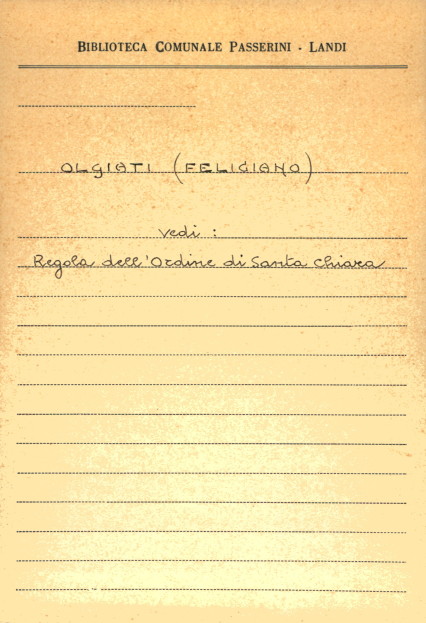 BIBLIOTECA COMUNALE PASSERINI - LANDI
OLGIATI (FELICIANO)
vedi :
Regola dell'Ordine di Santa Chiara